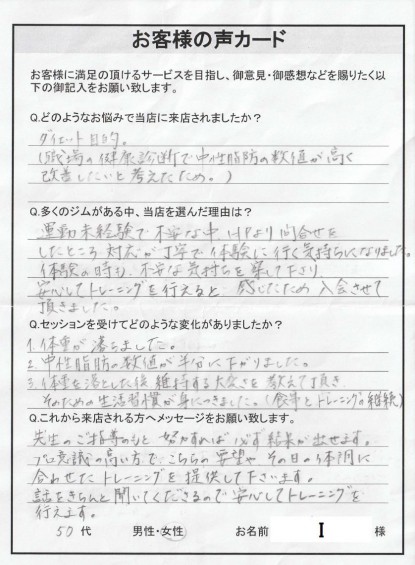 お客様の声カード
お客様に満足の頂けるサービスを目指し、御意見・御感想などを賜りたく以
下の御記入をお願い致します。
Q.どのようなお悩みで当店に来店されましたか？
ダイエット目的。
(職場の健康診断で中性脂肪の数値が高く
改善したいと考えたため。)
Q.多くのジムがある中、当店を選んだ理由は？
運動未経験で不安な中、HPより問合せを
したところ対応が丁寧で体験に行く気持ちになりました。
体験の時も、不安な気持ちを察して下さり
安心してトレーニングを行えると感じたため入会させて
頂きました。
Q.セッションを受けてどのような変化がありましたか？
1. 体重が落ちました。
2. 中性脂肪の数値が半分に下がりました。
3. 体重を落とした後維持する大切さを教えて頂き
そのための生活習慣が身につきました。(食事とトレーニングの継続)
Q.これから来店される方へメッセージをお願い致します。
先生のご指導のもと努力すれば必ず結果が出せます。
プロ意識の高い方で、こちらの要望やその日の体調に
合わせたトレーニングを提供して下さいます。
話をきちんと聞いてくださるので安心してトレーニングを
行えます。
50代 男性・女性 お名前 I 様